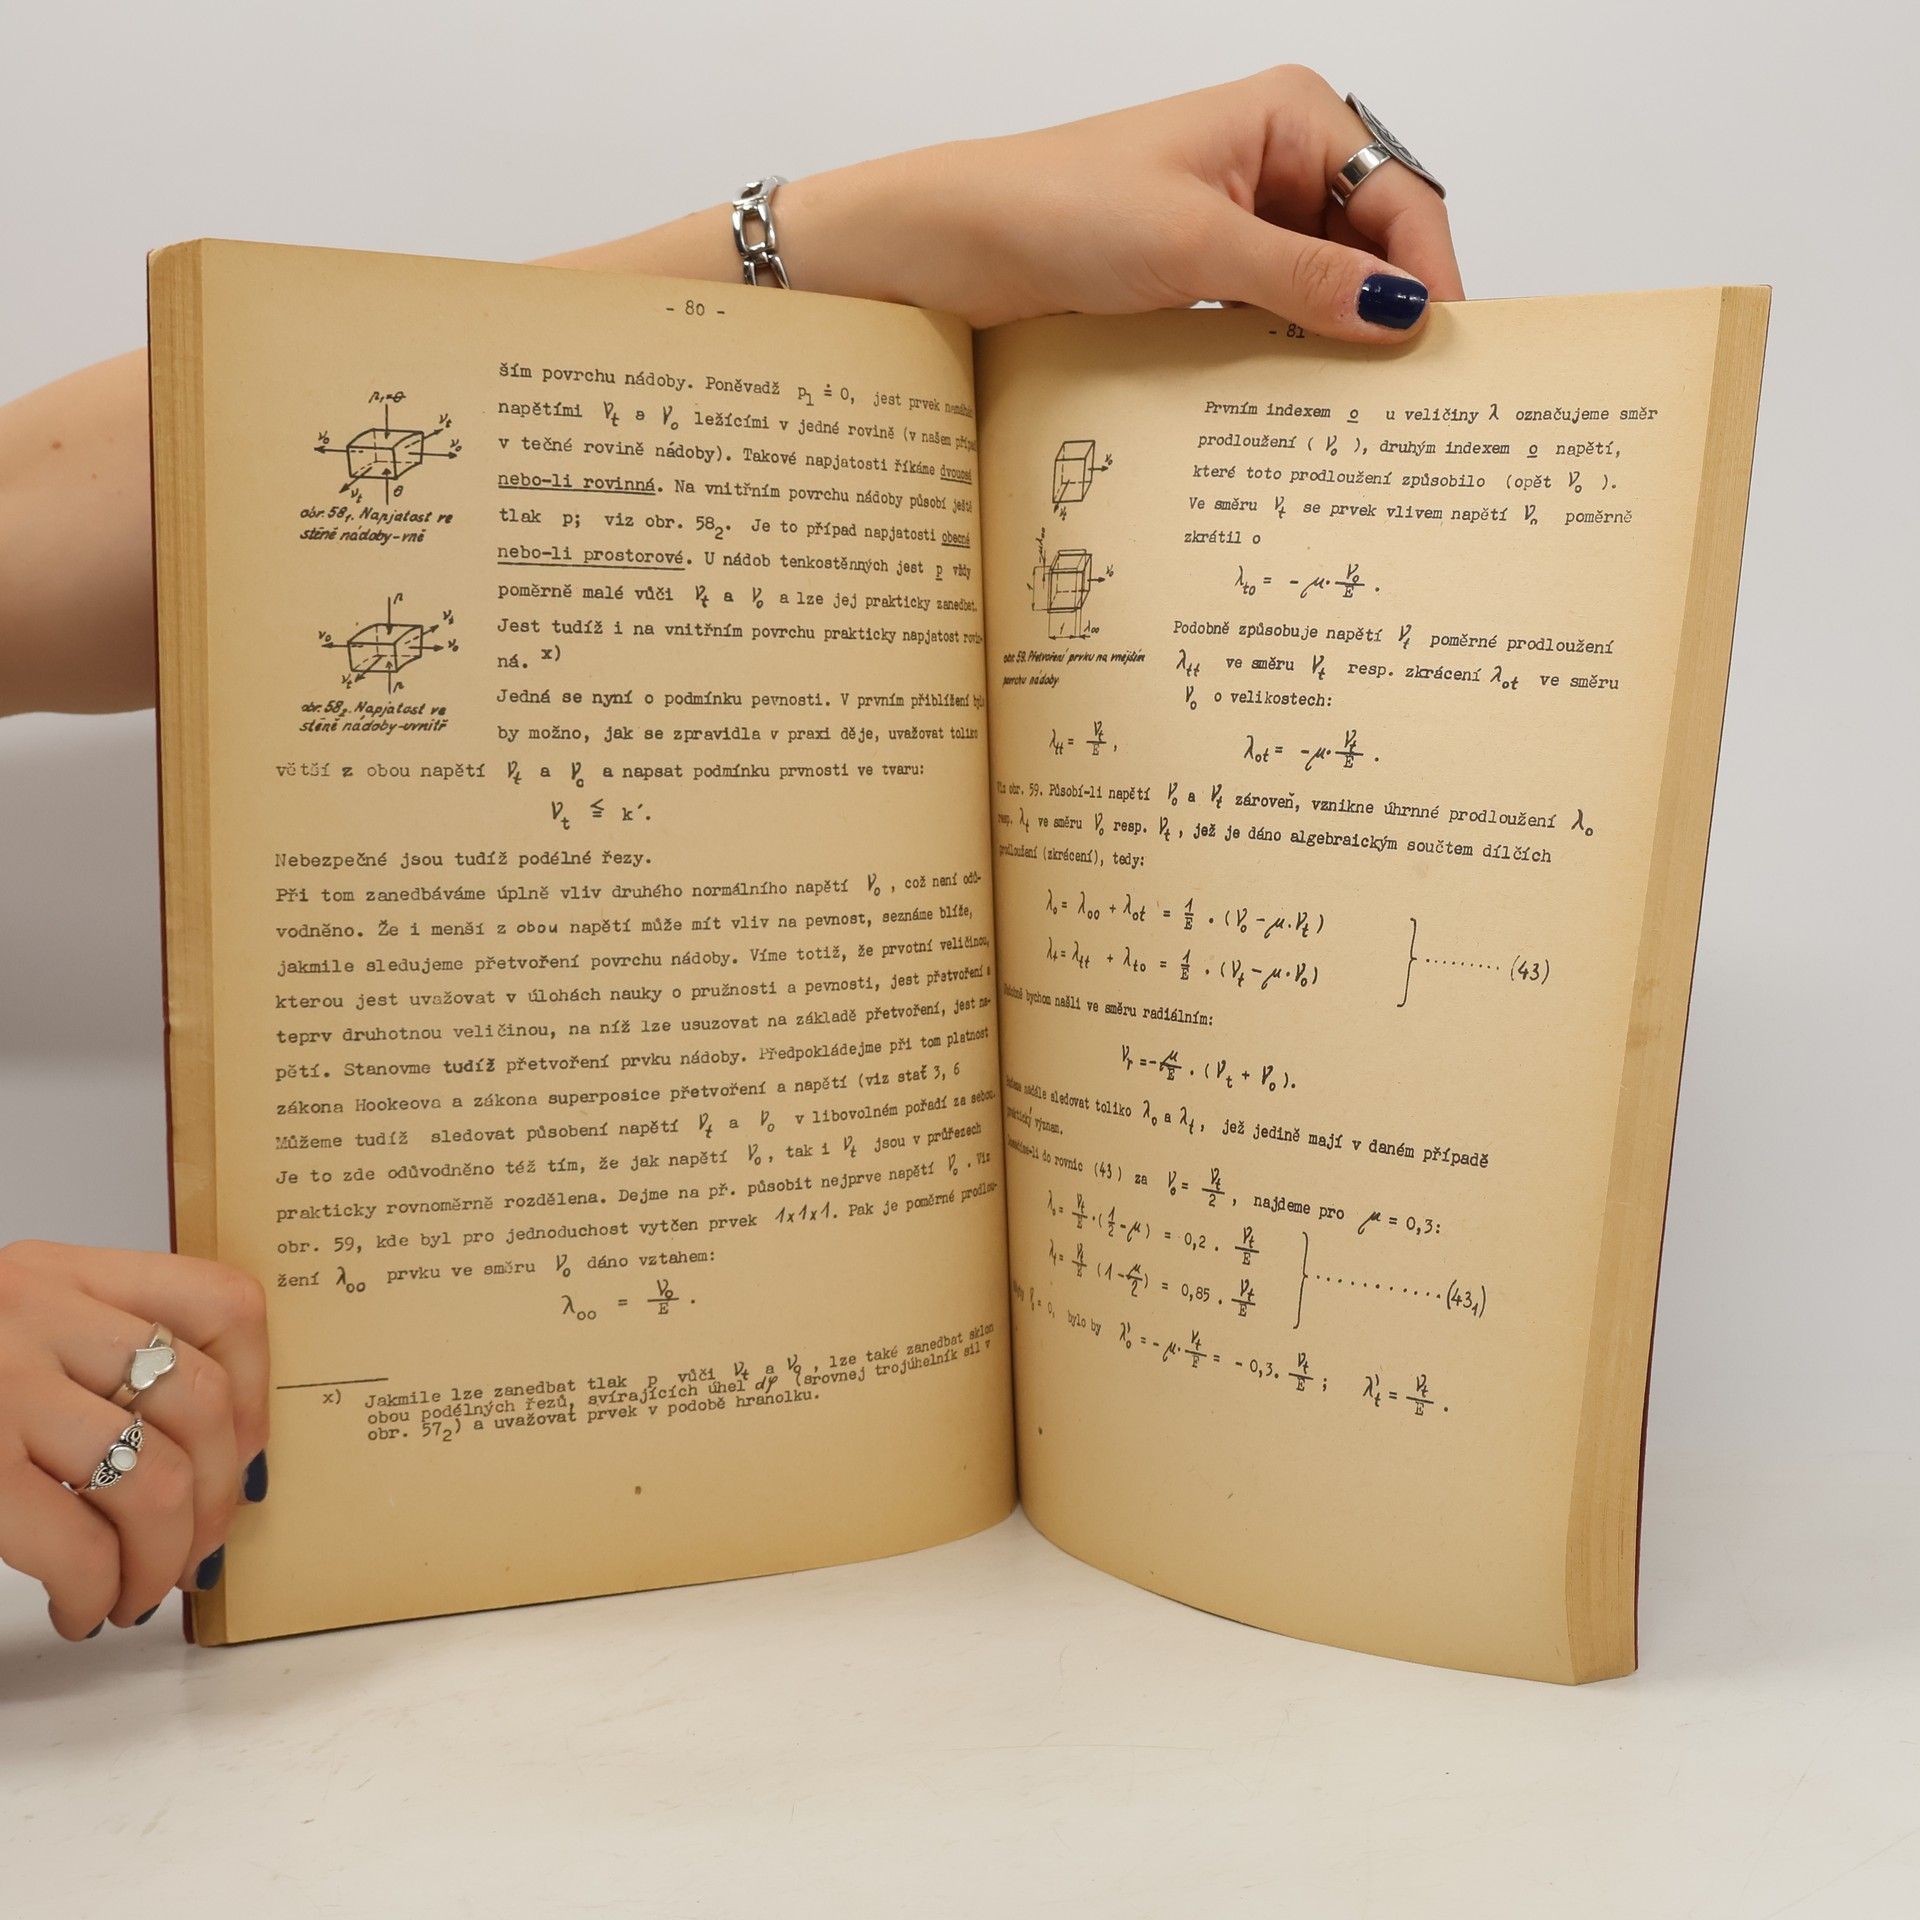 - 80 -
ším povrchu nádoby. Poněvadž p₁ ≐ 0, jest prvek
napětími ν_t a ν_o ležícími v jedné rovině (v našem
v tečné rovině nádoby). Takové napjatosti říkáme dvouosé
nebo-li rovinná. Na vnitřním povrchu nádoby působí ještě
tlak p; viz obr. 58₂. Je to případ napjatosti obecné
nebo-li prostorové. U nádob tenkostěnných jest p vždy
poměrně malé vůči ν_t a ν_o a lze jej prakticky zanedbat.
Jest tudíž i na vnitřním povrchu prakticky napjatost rovin-
ná. x)
Jedná se nyní o podmínku pevnosti. V prvním přiblížení bylo
by možno, jak se zpravidla v praxi děje, uvažovat toliko
větší z obou napětí ν_t a ν_o a napsat podmínku prvnosti ve tvaru:
ν_t ≤ k´.
Nebezpečné jsou tudíž podélné řezy.
Při tom zanedbáváme úplně vliv druhého normálního napětí ν_o , což není odů-
vodněno. Že i menší z obou napětí může mít vliv na pevnost, seznáme blíže,
jakmile sledujeme přetvoření povrchu nádoby. Víme totiž, že prvotní veličinou,
kterou jest uvažovat v úlohách nauky o pružnosti a pevnosti, jest přetvoření a
teprv druhotnou veličinou, na níž lze usuzovat na základě přetvoření, jest na-
pětí. Stanovme tudíž přetvoření prvku nádoby. Předpokládejme při tom platnost
zákona Hookeova a zákona superposice přetvoření a napětí (viz stať 3, 6
Můžeme tudíž sledovat působení napětí ν_t a ν_o v libovolném pořadí za sebou.
Je to zde odůvodněno též tím, že jak napětí ν_o , tak i ν_t jsou v průřezech
prakticky rovnoměrně rozdělena. Dejme na př. působit nejprve napětí ν_o . Viz
obr. 59, kde byl pro jednoduchost vytčen prvek 1x1x1. Pak je poměrné prodlou-
žení λ_oo prvku ve směru ν_o dáno vztahem:
λ_oo = ν_o/E .
x) Jakmile lze zanedbat tlak p vůči ν_t a ν_o , lze také zanedbat sklon
obou podélných řezů, svírajících úhel dφ (srovnej trojúhelník sil v
obr. 57₂) a uvažovat prvek v podobě hranolku.
p₁=0
ν_t
ν_o
ν_o
ν_t
0
obr. 58₁. Napjatost ve
stěně nádoby-vně
p
ν_t
ν_o
ν_o
ν_t
p
obr. 58₂. Napjatost ve
stěně nádoby-uvnitř
- 81
Prvním indexem o u veličiny λ označujeme směr
prodloužení ( ν_o ), druhým indexem o napětí,
které toto prodloužení způsobilo (opět ν_o ).
Ve směru ν_t se prvek vlivem napětí ν_o poměrně
zkrátil o
λ_to = - μ· ν_o/E .
Podobně způsobuje napětí ν_t poměrné prodloužení
λ_tt ve směru ν_t resp. zkrácení λ_ot ve směru
ν_o o velikostech:
λ_tt = ν_t/E , λ_ot = -μ· ν_t/E .
ν_o
ν_t
ν_o
1
λ_oo
obr. 59. Přetvoření prvku na vnějším
povrchu nádoby
Viz obr. 59. Působí-li napětí ν_o a ν_t zároveň, vznikne úhrnné prodloužení λ_o
resp. λ_t ve směru ν_o resp. ν_t , jež je dáno algebraickým součtem dílčích
prodloužení (zkrácení), tedy:
λ_o = λ_oo + λ_ot = 1/E . (ν_o - μ.ν_t)
λ_t = λ_tt + λ_to = 1/E . (ν_t - μ.ν_o) } ......... (43)
Podobně bychom našli ve směru radiálním:
ν_r = - μ/E . (ν_t + ν_o).
nadále sledovat toliko λ_o a λ_t, jež jedině mají v daném případě
praktický význam.
Dosadíme-li do rovnic (43) za ν_o = ν_t/2 , najdeme pro μ = 0,3:
λ_o = ν_t/E . (1/2 - μ) = 0,2 . ν_t/E
λ_t = ν_t/E (1 - μ/2) = 0,85 . ν_t/E } .......... (43₁)
ν_o = 0, bylo by λ'_o = - μ· ν_t/E = - 0,3. ν_t/E ; λ'_t = ν_t/E .